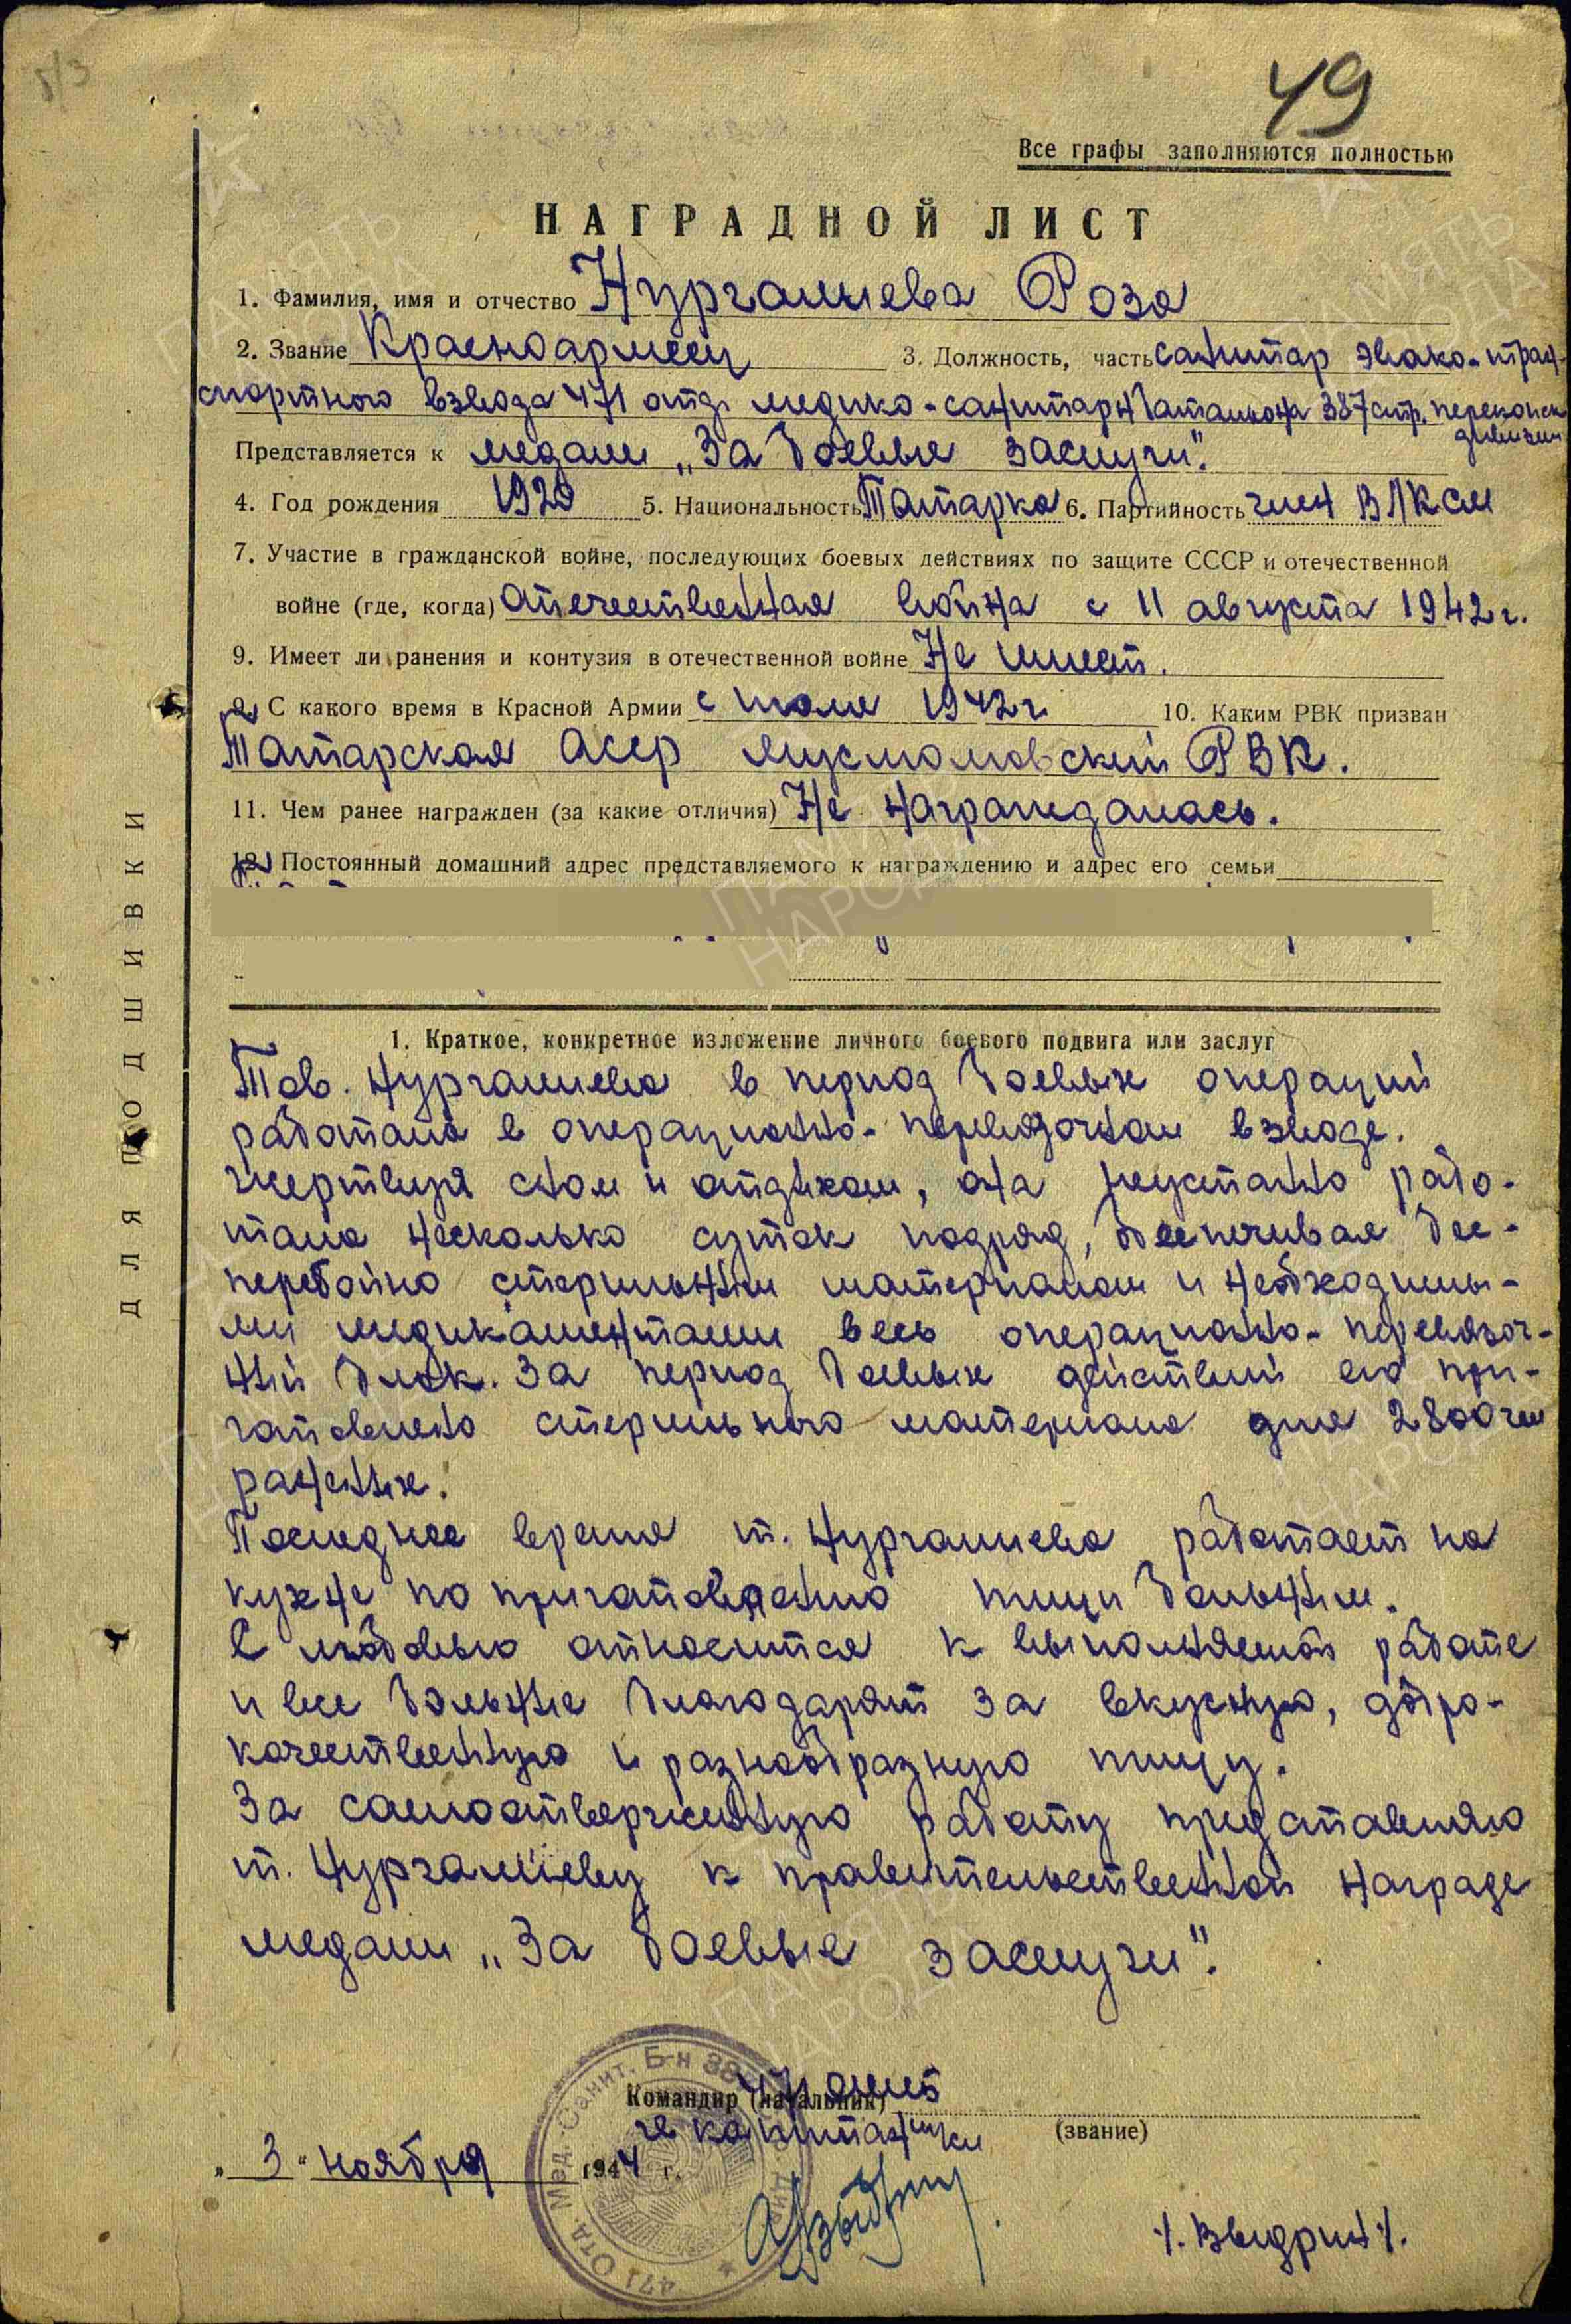 49
Все графы заполняются полностью
НАГРАДНОЙ ЛИСТ
1. Фамилия, имя и отчество Нургалиева Роза
2. Звание Красноармеец 3. Должность, часть санитар эвако-тран-
спортного взвода 471 отд. медико-санитарн. батальона 387 стр. перекопск.
дивизии
Представляется к медали „За боевые заслуги".
4. Год рождения 1920 5. Национальность Татарка 6. Партийность член ВЛКСМ
7. Участие в гражданской войне, последующих боевых действиях по защите СССР и отечественной
войне (где, когда) Отечественная война с 11 августа 1942 г.
9. Имеет ли ранения и контузия в отечественной войне Не имеет.
9. С какого время в Красной Армии с июля 1942 г. 10. Каким РВК призван
Татарская АССР РВК.
11. Чем ранее награжден (за какие отличия) Не награждалась.
12. Постоянный домашний адрес представляемого к награждению и адрес его семьи
ДЛЯ ПОДШИВКИ
1. Краткое, конкретное изложение личного боевого подвига или заслуг
Тов. Нургалиева в период боевых операций
работала в операционно-перевязочном взводе.
Жертвуя сном и отдыхом, она неустанно рабо-
тала несколько суток подряд, обеспечивая бес-
перебойно стерильным материалом и необходимы-
ми медикаментами весь операционно-перевязоч-
ный блок. За период боевых действий ею при-
готовлено стерильного материала для 2800 чел
раненых.
Последнее время т. Нургалиева работает на
кухне по приготовлению пищи больным.
С любовью относится к выполняемой работе
и все больные благодарят за вкусную, добро-
качественную и разнообразную пищу.
За самоотверженную работу представляю
т. Нургалиеву к правительственной награде
медали „За боевые заслуги".
Командир (начальник) 471 омсб
капитан м/сл
(звание)
„3" ноября 1944 г.
/. Выдрин /.
471 Отд. Мед.-Санит. Б-н
ПАМЯТЬ НАРОДА